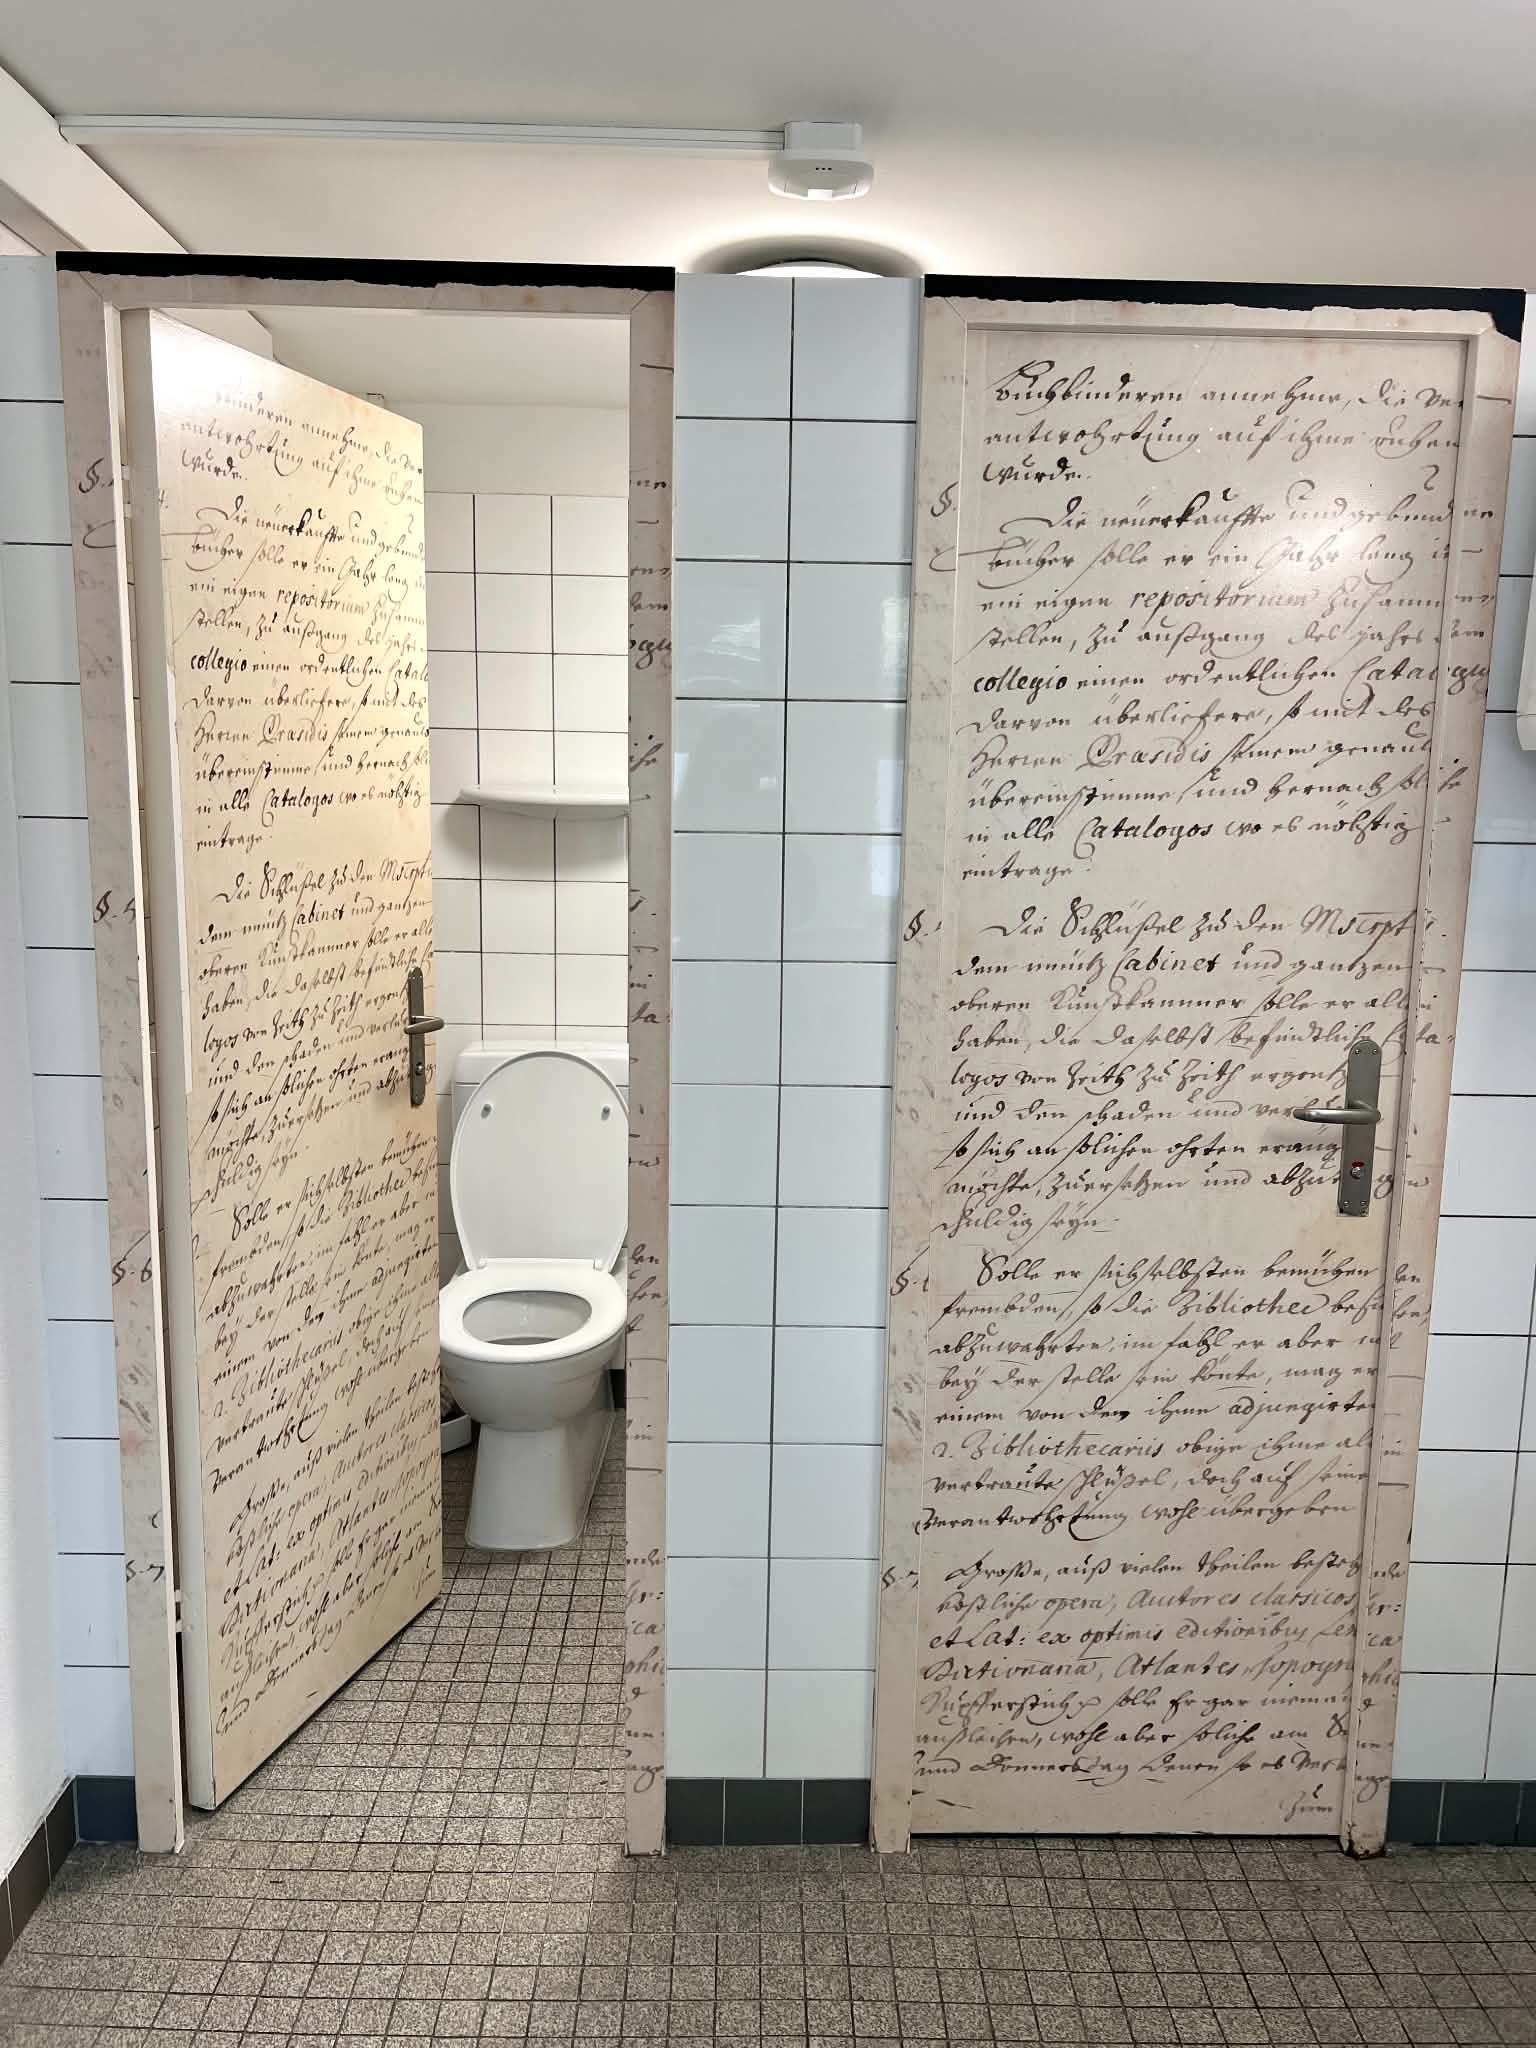 Buchbinderen annehme, die ver-
antwohrtung auf ihme ruhen
wurde.
§.
Die neüerkauffte und gebundene
bücher solle er ein Jahr lang in
ein eigen repositorium zusamen
stellen, zu außgang des jahrs dem
collegio einen ordentlichen Catalogum
darvon überliefere, so mit des
Herren Præsidis seinem genaue
übereinstimme, und hernach solche
in alle Catalogos wo es nöhtig
eintrage.
§.
Die Schlüßel zu den Mscrpt
dem müntz Cabinet und gantzen
oberen Kunstkammer solle er allein
haben, die daselbst befindliche Cata-
logos von Zeith zu Zeith
und den schaden und verlust
so sich an solichen ohrten
möchte, zuersetzen und abzutragen
schuldig seyn.
§. 6
Solle er sich selbsten bemühen den
frembden, so die Bibliothec besuchen,
abzuwahrten, im fahl er aber
bey der stelle sein könte, mag er
einem von den ihme adjungirten
2. Bibliothecariis obige ihme allein
vertraute schlüßel, doch auf seine
verantwohrtung wohl übergeben
§. 7
Große, auß vielen theilen bestehende
köstliche opera, Auctores classicos, Gr:
et Lat: ex optimis editionibus, Lexica
Dictionaria, Atlantes, topographica
Kupfferstich solle Er gar niemand
außleihen, wohl aber soliche am
und Donnerstag denen so es verlange
zum